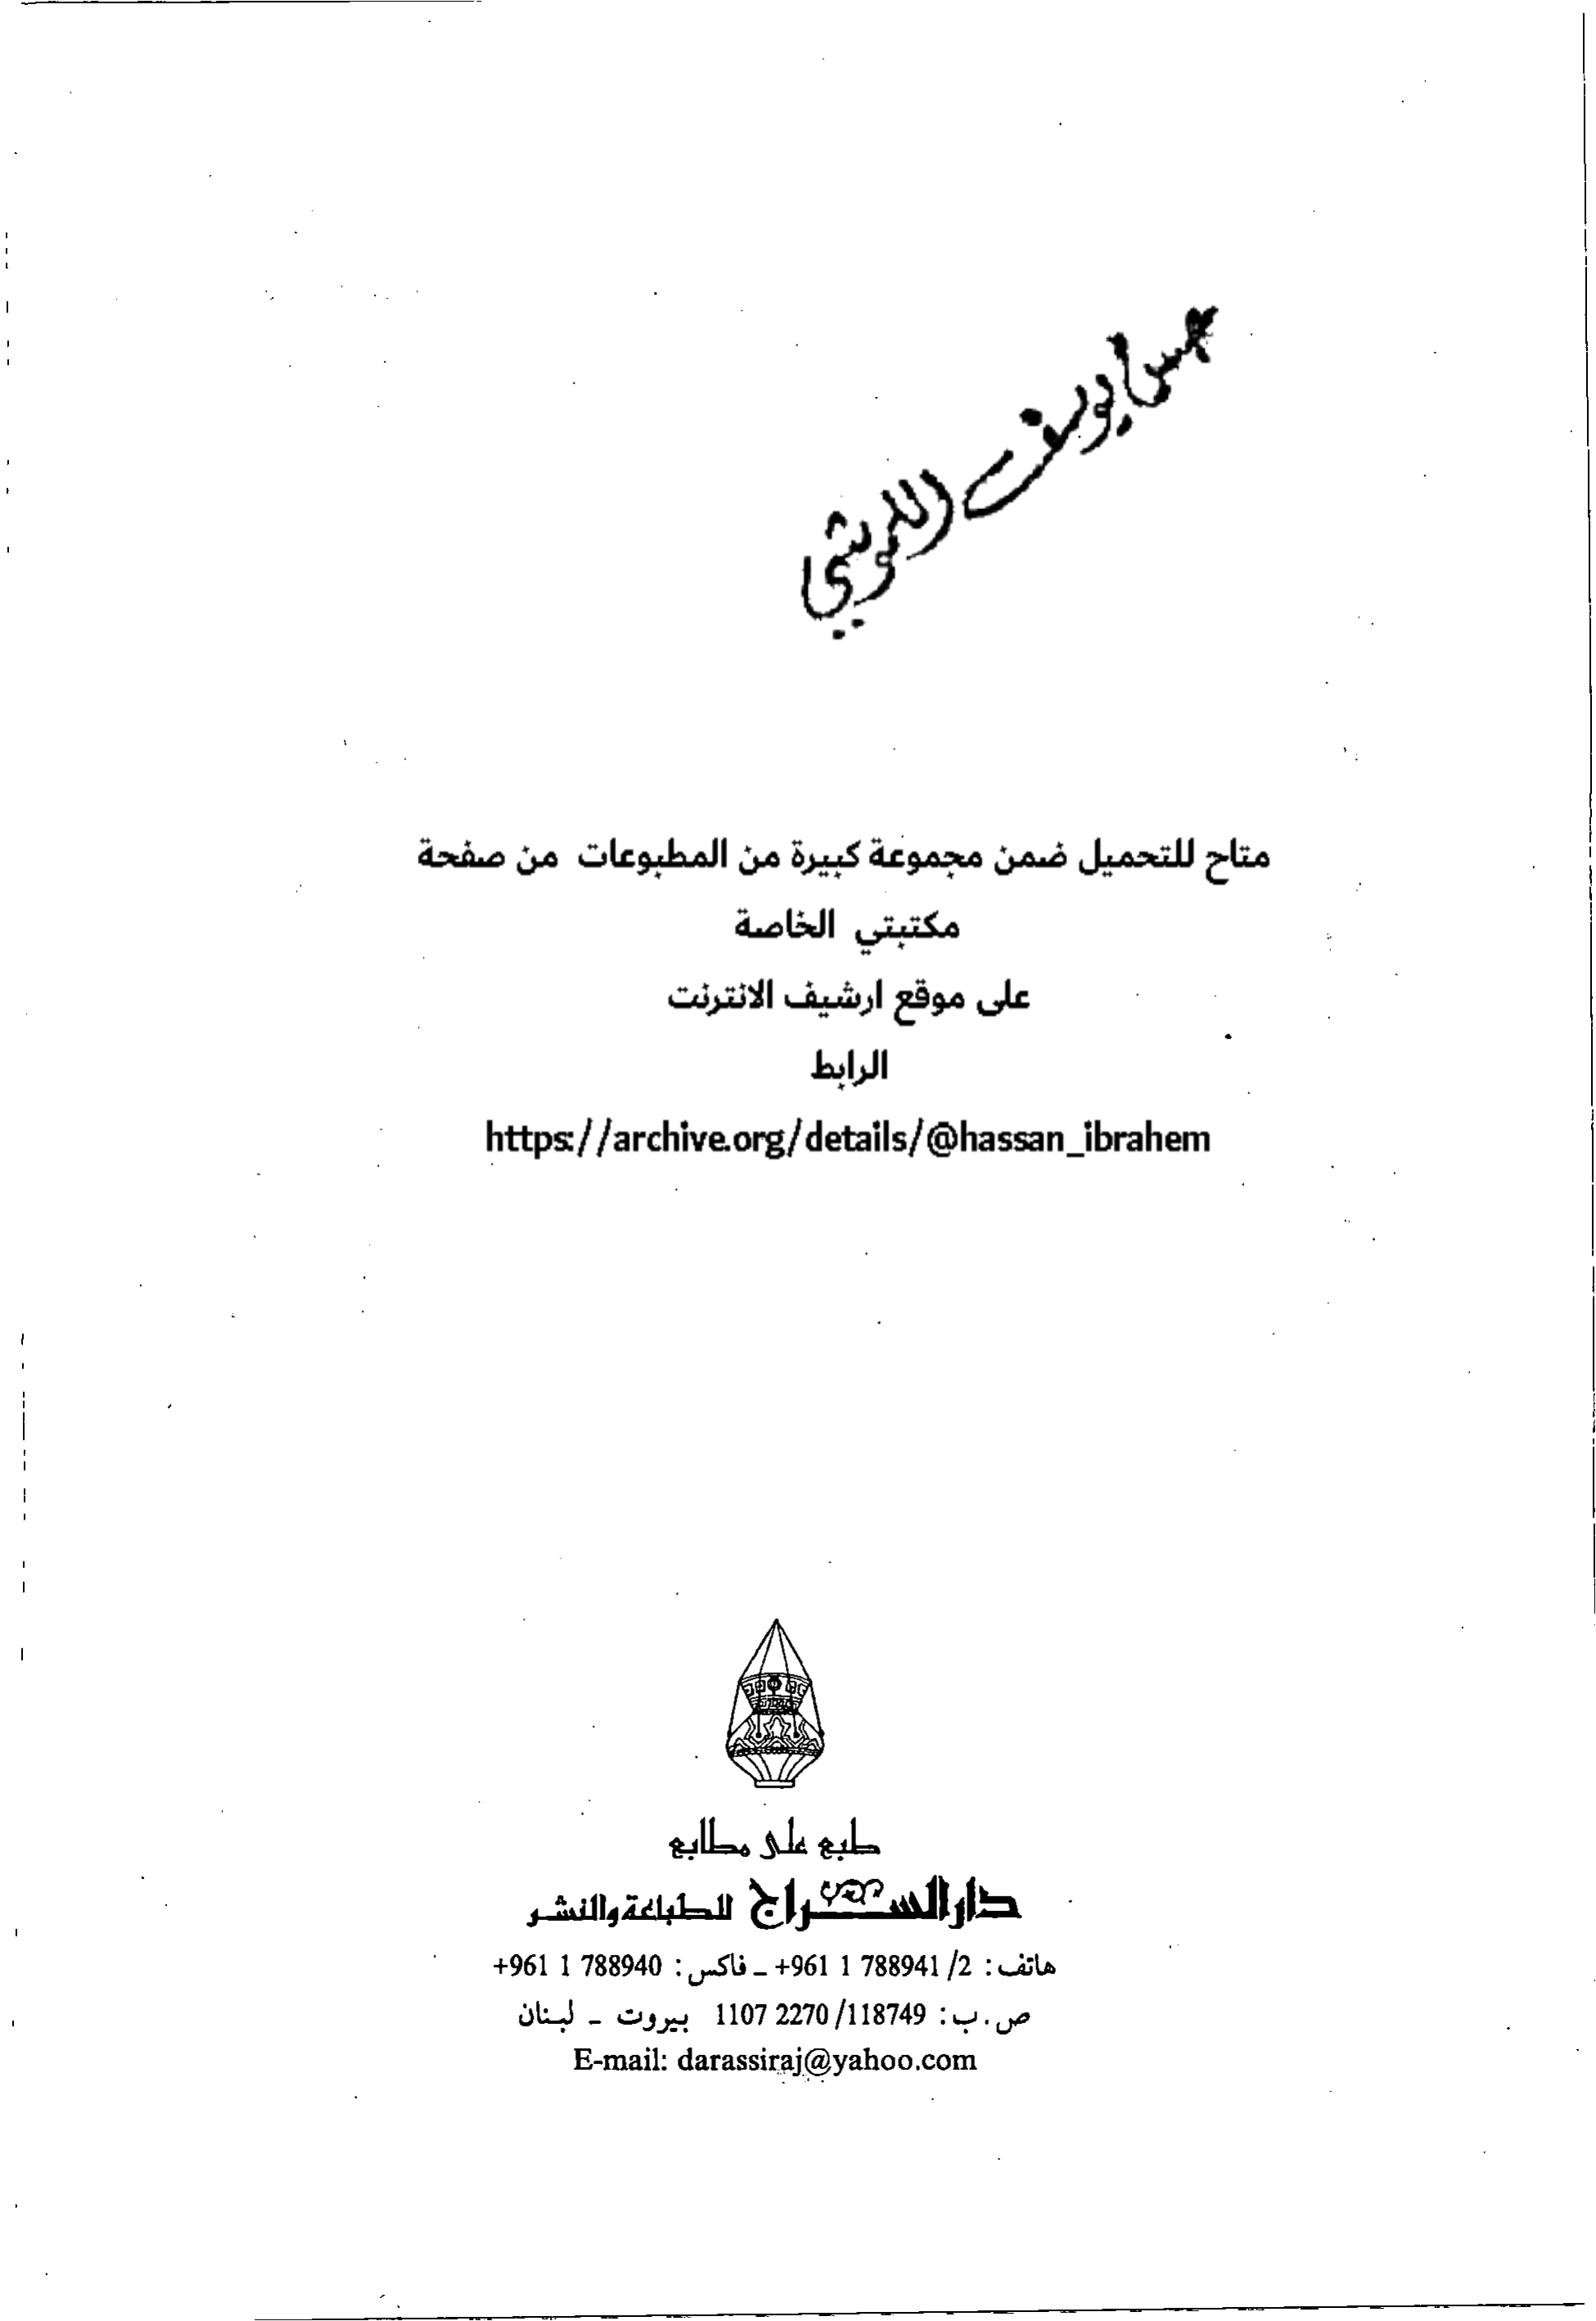 يوسف
متاح للتحميل ضمن مجموعة كبيرة من المطبوعات من صفحة
مكتبتي الخاصة
على موقع ارشيف الانترنت
الرابط
https://archive.org/details/@hassan_ibrahem
طبع على مطابع
دار السراج للطباعة والنشر
هاتف: 2/ 788941 1 961+ ـ فاكس: 788940 1 961+
ص.ب: 118749/ 2270 1107 بيروت ـ لبنان
E-mail: darassiraj@yahoo.com